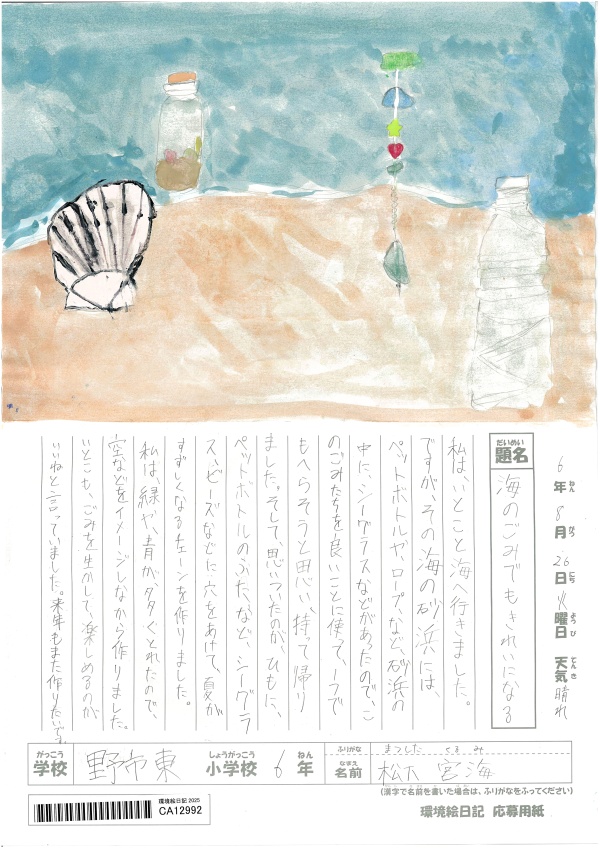 6年 8月 26日 火曜日 天気 晴れ
ねん がつ にち ようび てんき
だいめい
題名
海のごみでもきれいになる
私は、いとこと海へ行きました。
ですが、その海の砂浜には、
ペットボトルや、ロープ、など、砂浜の
中に、シーグラスなどがあったので、こ
のごみたちを良いことに使って、1つで
もへらそうと思い、持って帰り
ました。そして、思いついたのが、ひもに、
ペットボトルのふた、など、シーグラ
ス、ビーズなどに穴をあけて、夏が
すずしくなるチェーンを作りました。
私は、緑や、青が、多くとれたので、
空などをイメージしながら作りました。
いとこも、ごみを生かして、楽しめるのが、
いいねと言っていました。来年もまた作りたいです
がっこう
学校
野市東
しょうがっこう
小学校
6
ねん
年
ふりがな
まつした くるみ
なまえ
名前
松下 宮海
(漢字で名前を書いた場合は、ふりがなをふってください)
環境絵日記 2025
CA12992
環境絵日記 応募用紙